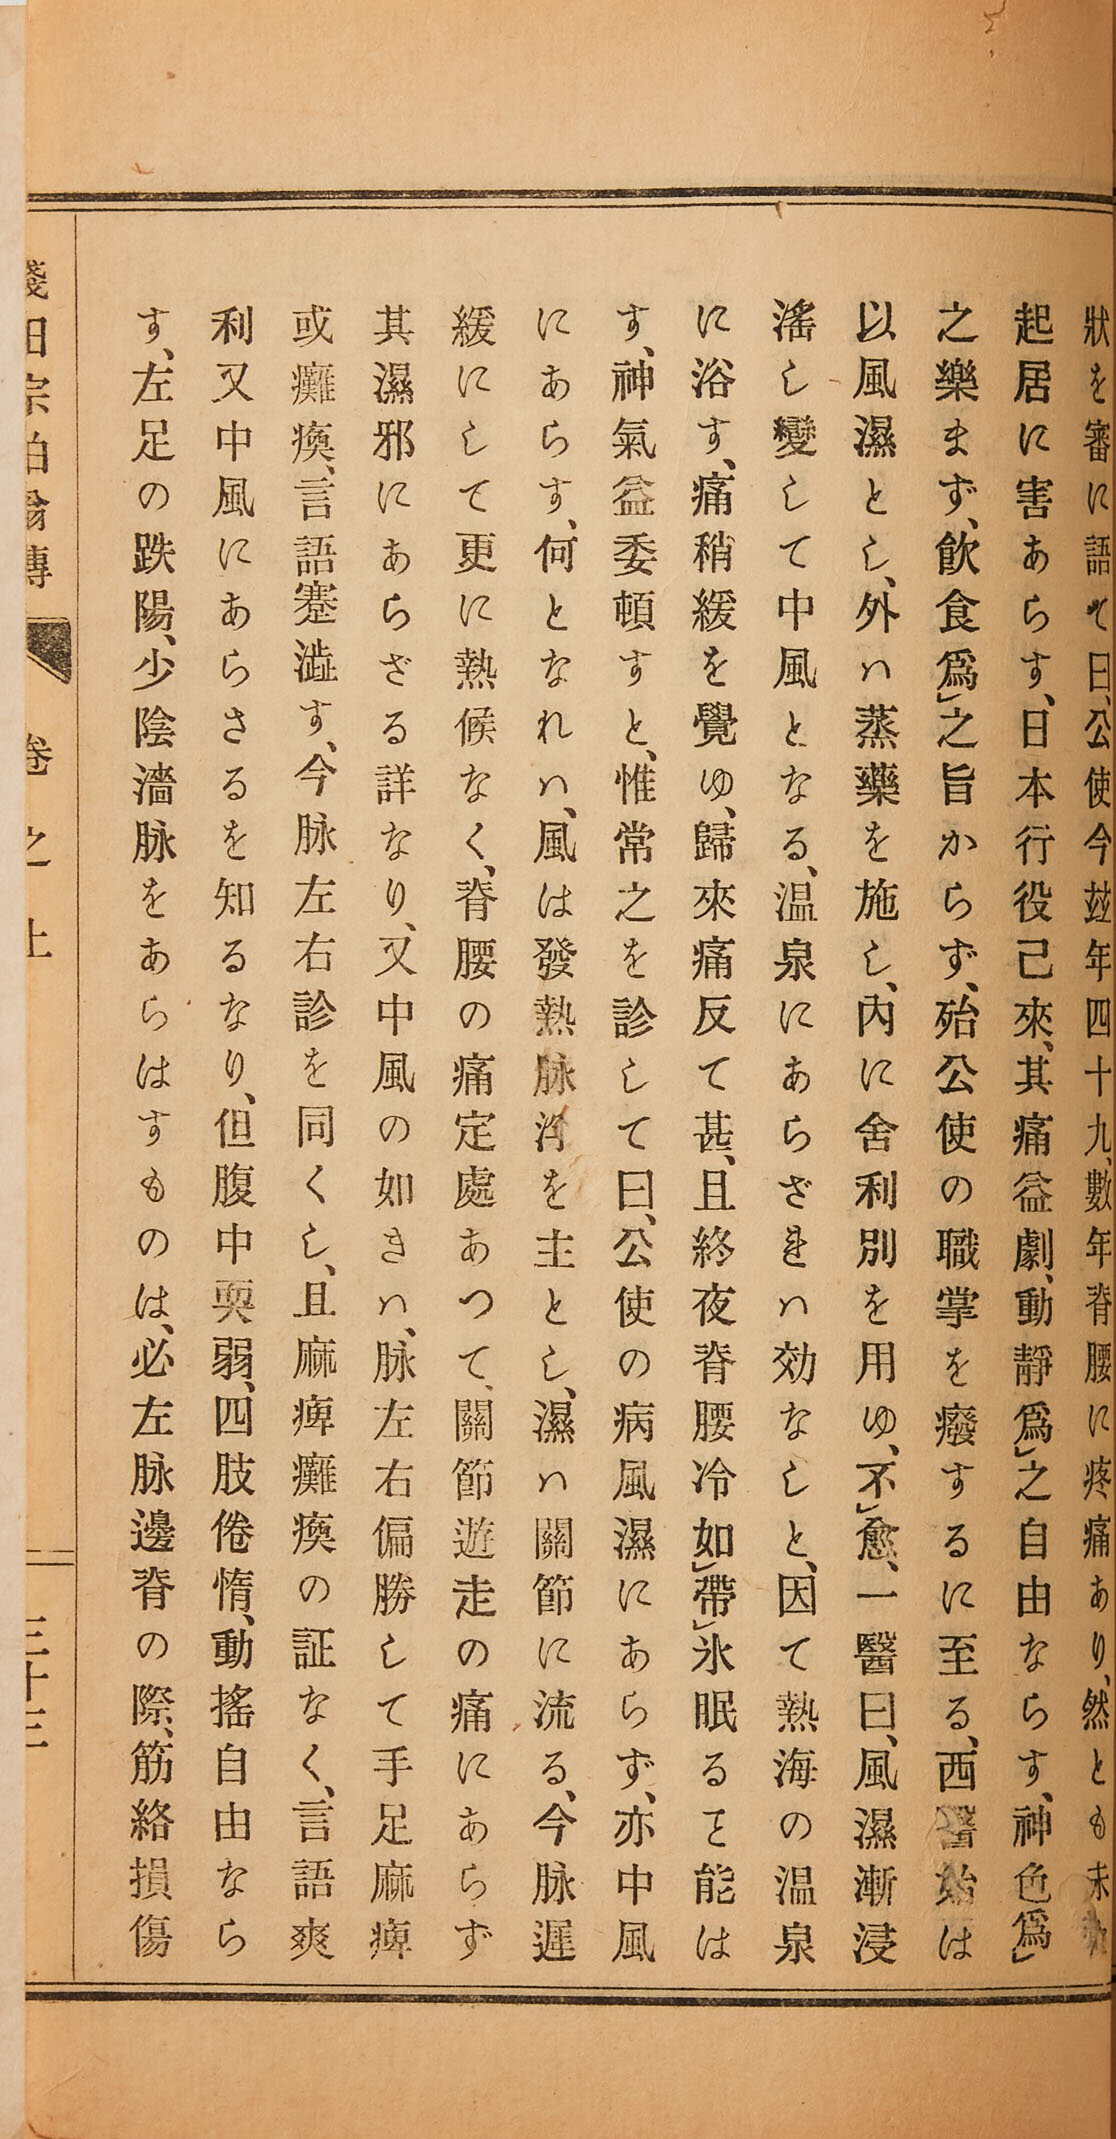 狀を審に語て曰、公使今玆年四十九、數年脊腰に疼痛あり、然とも未
起居に害あらす、日本行役己來、其痛益劇、動靜爲」之自由ならす、神色爲」
之樂まず、飮食爲」之旨からず、殆公使の職掌を癈するに至る、西醫始は
以風濕とし、外ハ蒸藥を施し、內に舍利別を用ゆ、不」愈、一醫曰、風濕漸浸
滛し變して中風となる、温泉にあらざれハ効なしと、因て熱海の温泉
に浴す、痛稍緩を覺ゆ、歸來痛反て甚、且終夜脊腰冷如」帶」氷眠るヿ能は
す、神氣益委頓すと、惟常之を診して曰、公使の病風濕にあらず、亦中風
にあらす、何となれハ、風は發熱脉浮を主とし、濕ハ關節に流る、今脉遲
緩にして更に熱候なく、脊腰の痛定處あつて、關節遊走の痛にあらず
其濕邪にあらざる詳なり、又中風の如きハ、脉左右偏勝して手足麻痺
或癱瘓、言語蹇澁す、今脉左右診を同くし、且麻痺癱瘓の証なく、言語爽
利又中風にあらさるを知るなり、但腹中耎弱、四肢倦惰、動搖自由なら
す、左足の跌陽、少陰濇脉をあらはすものは、必左脉邊脊の際、筋絡損傷
淺田宗伯翁傳　卷之上　三十三